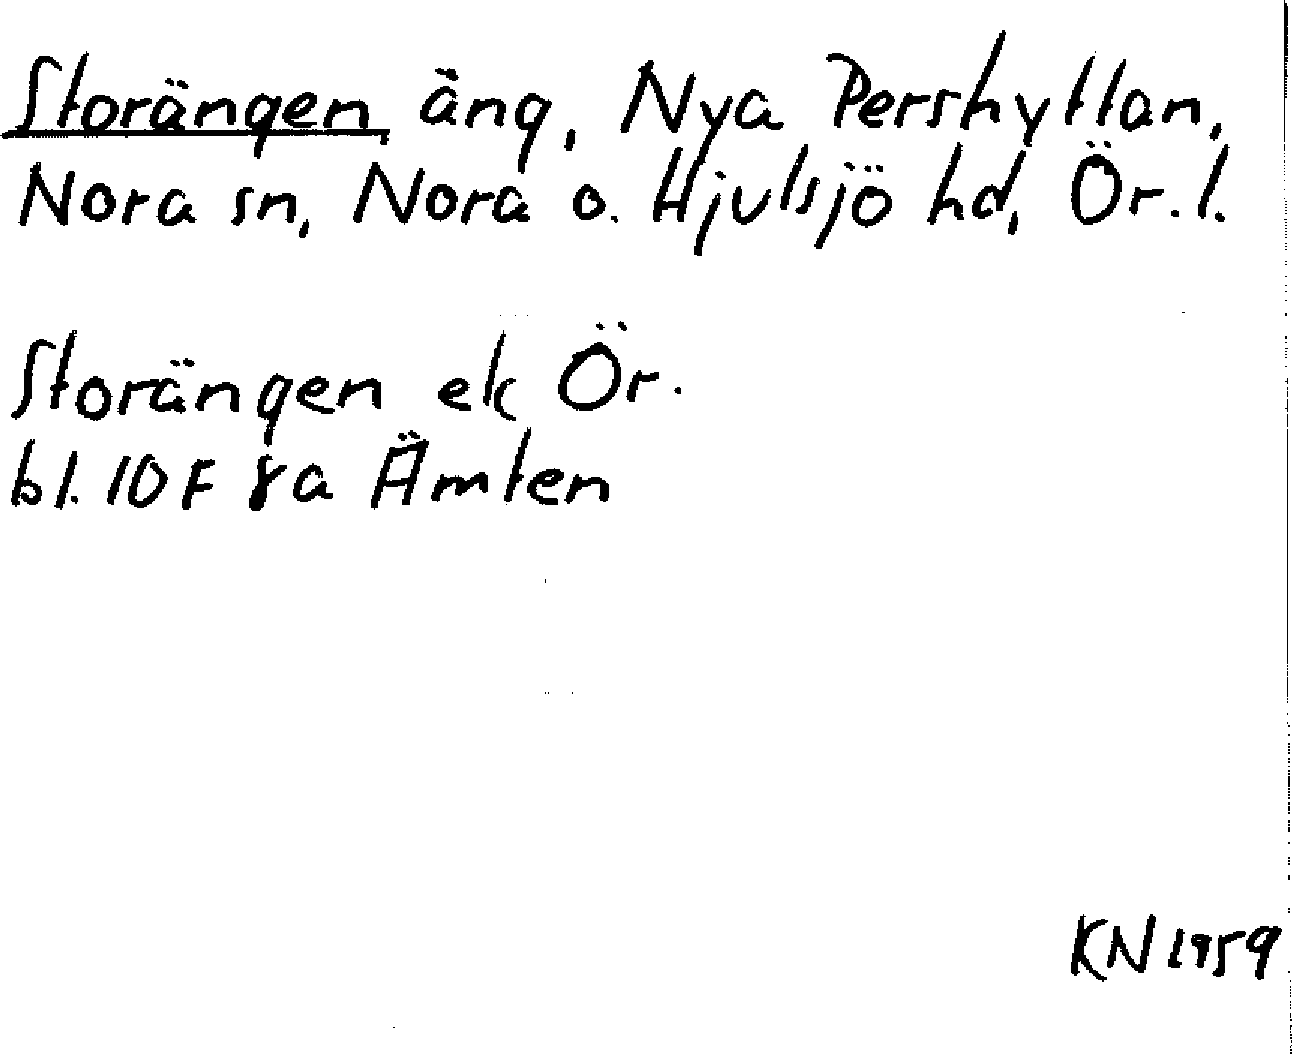 Storängen, äng, Nya Pershyttan,
Nora sn, Nora o. Hjulsjö hd, Ör. l.
Storängen ek Ör.
bl. 10F 8a Ämten
KN 1959